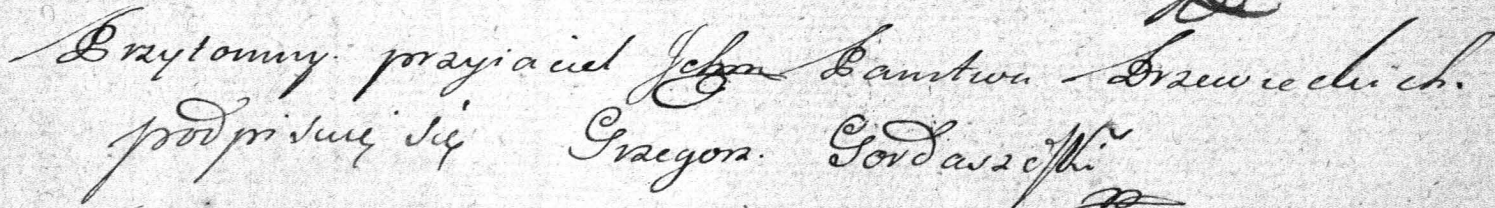 Przytomny przyiaciel Jchm Państwa Drzewieckich.
podpisuię się Grzegorz. Gordaszewski